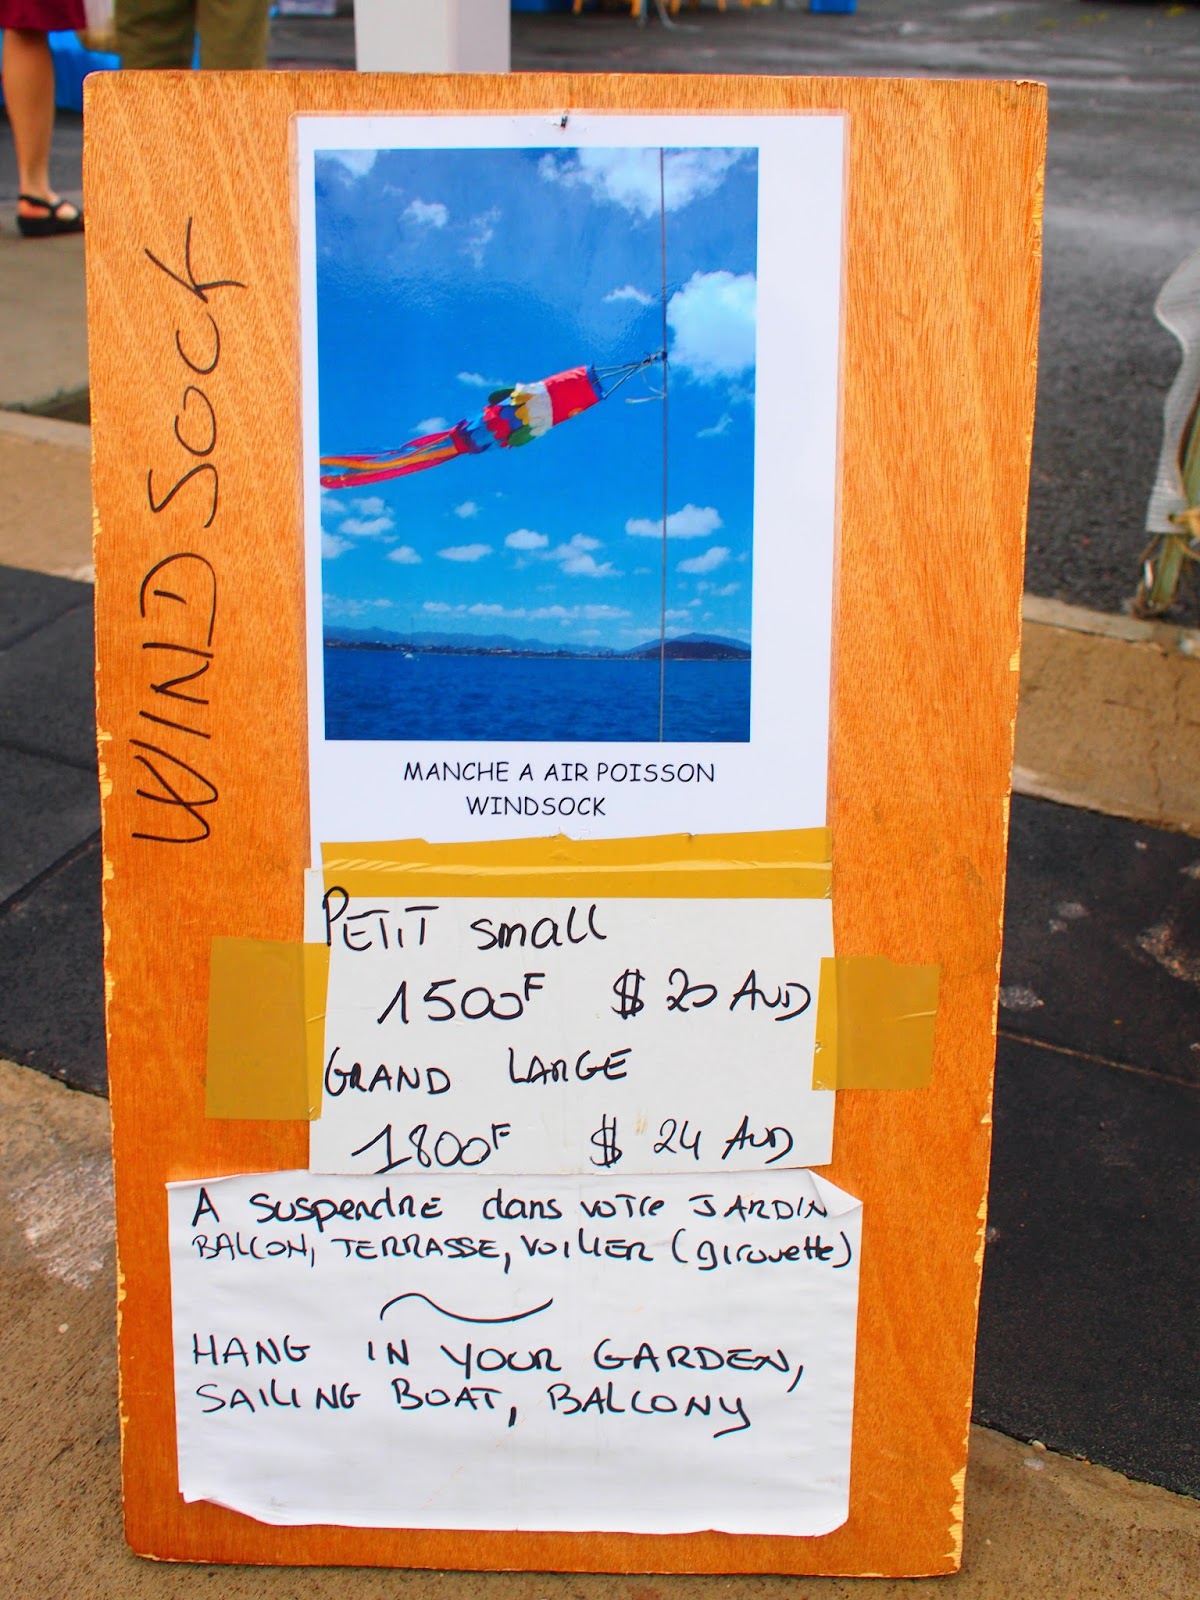 WINDSOCK
MANCHE A AIR POISSON
WINDSOCK
PETIT small
1500F $ 20 AUD
GRAND LARGE
1800F $ 24 AUD
A suspendre dans votre JARDIN
BALCON, TERRASSE, VOILIER (girouette)
HANG IN YOUR GARDEN,
SAILING BOAT, BALCONY